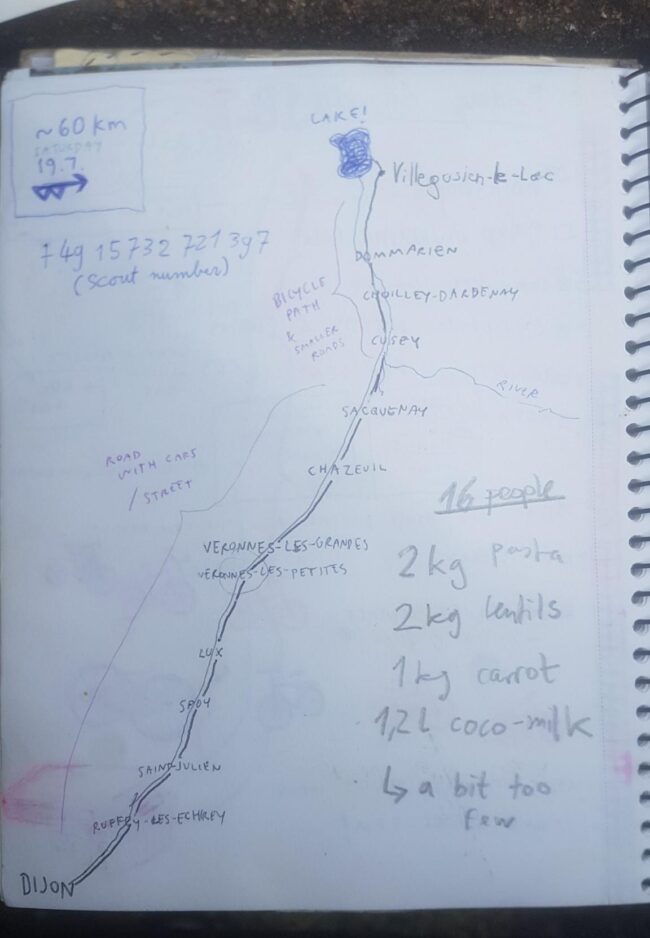 ~60 km
SATURDAY
19.7.
LAKE!
Villegusien-le-Lac
749 15732 721 397
(scout number)
DOMMARIEN
BICYCLE
PATH
&
SMALLER
ROADS
CHOILLEY-DARDENAY
CUSEY
RIVER
SACQUENAY
ROAD
WITH CARS
/ STREET
CHAZEUIL
VERONNES-LES-GRANDES
VERONNES-LES-PETITES
LUX
SPOY
SAINT-JULIEN
RUFFEY-LES-ECHIREY
DIJON
16 people
2 kg pasta
2 kg lentils
1 kg carrot
1,2 L coco-milk
↳ a bit too
few